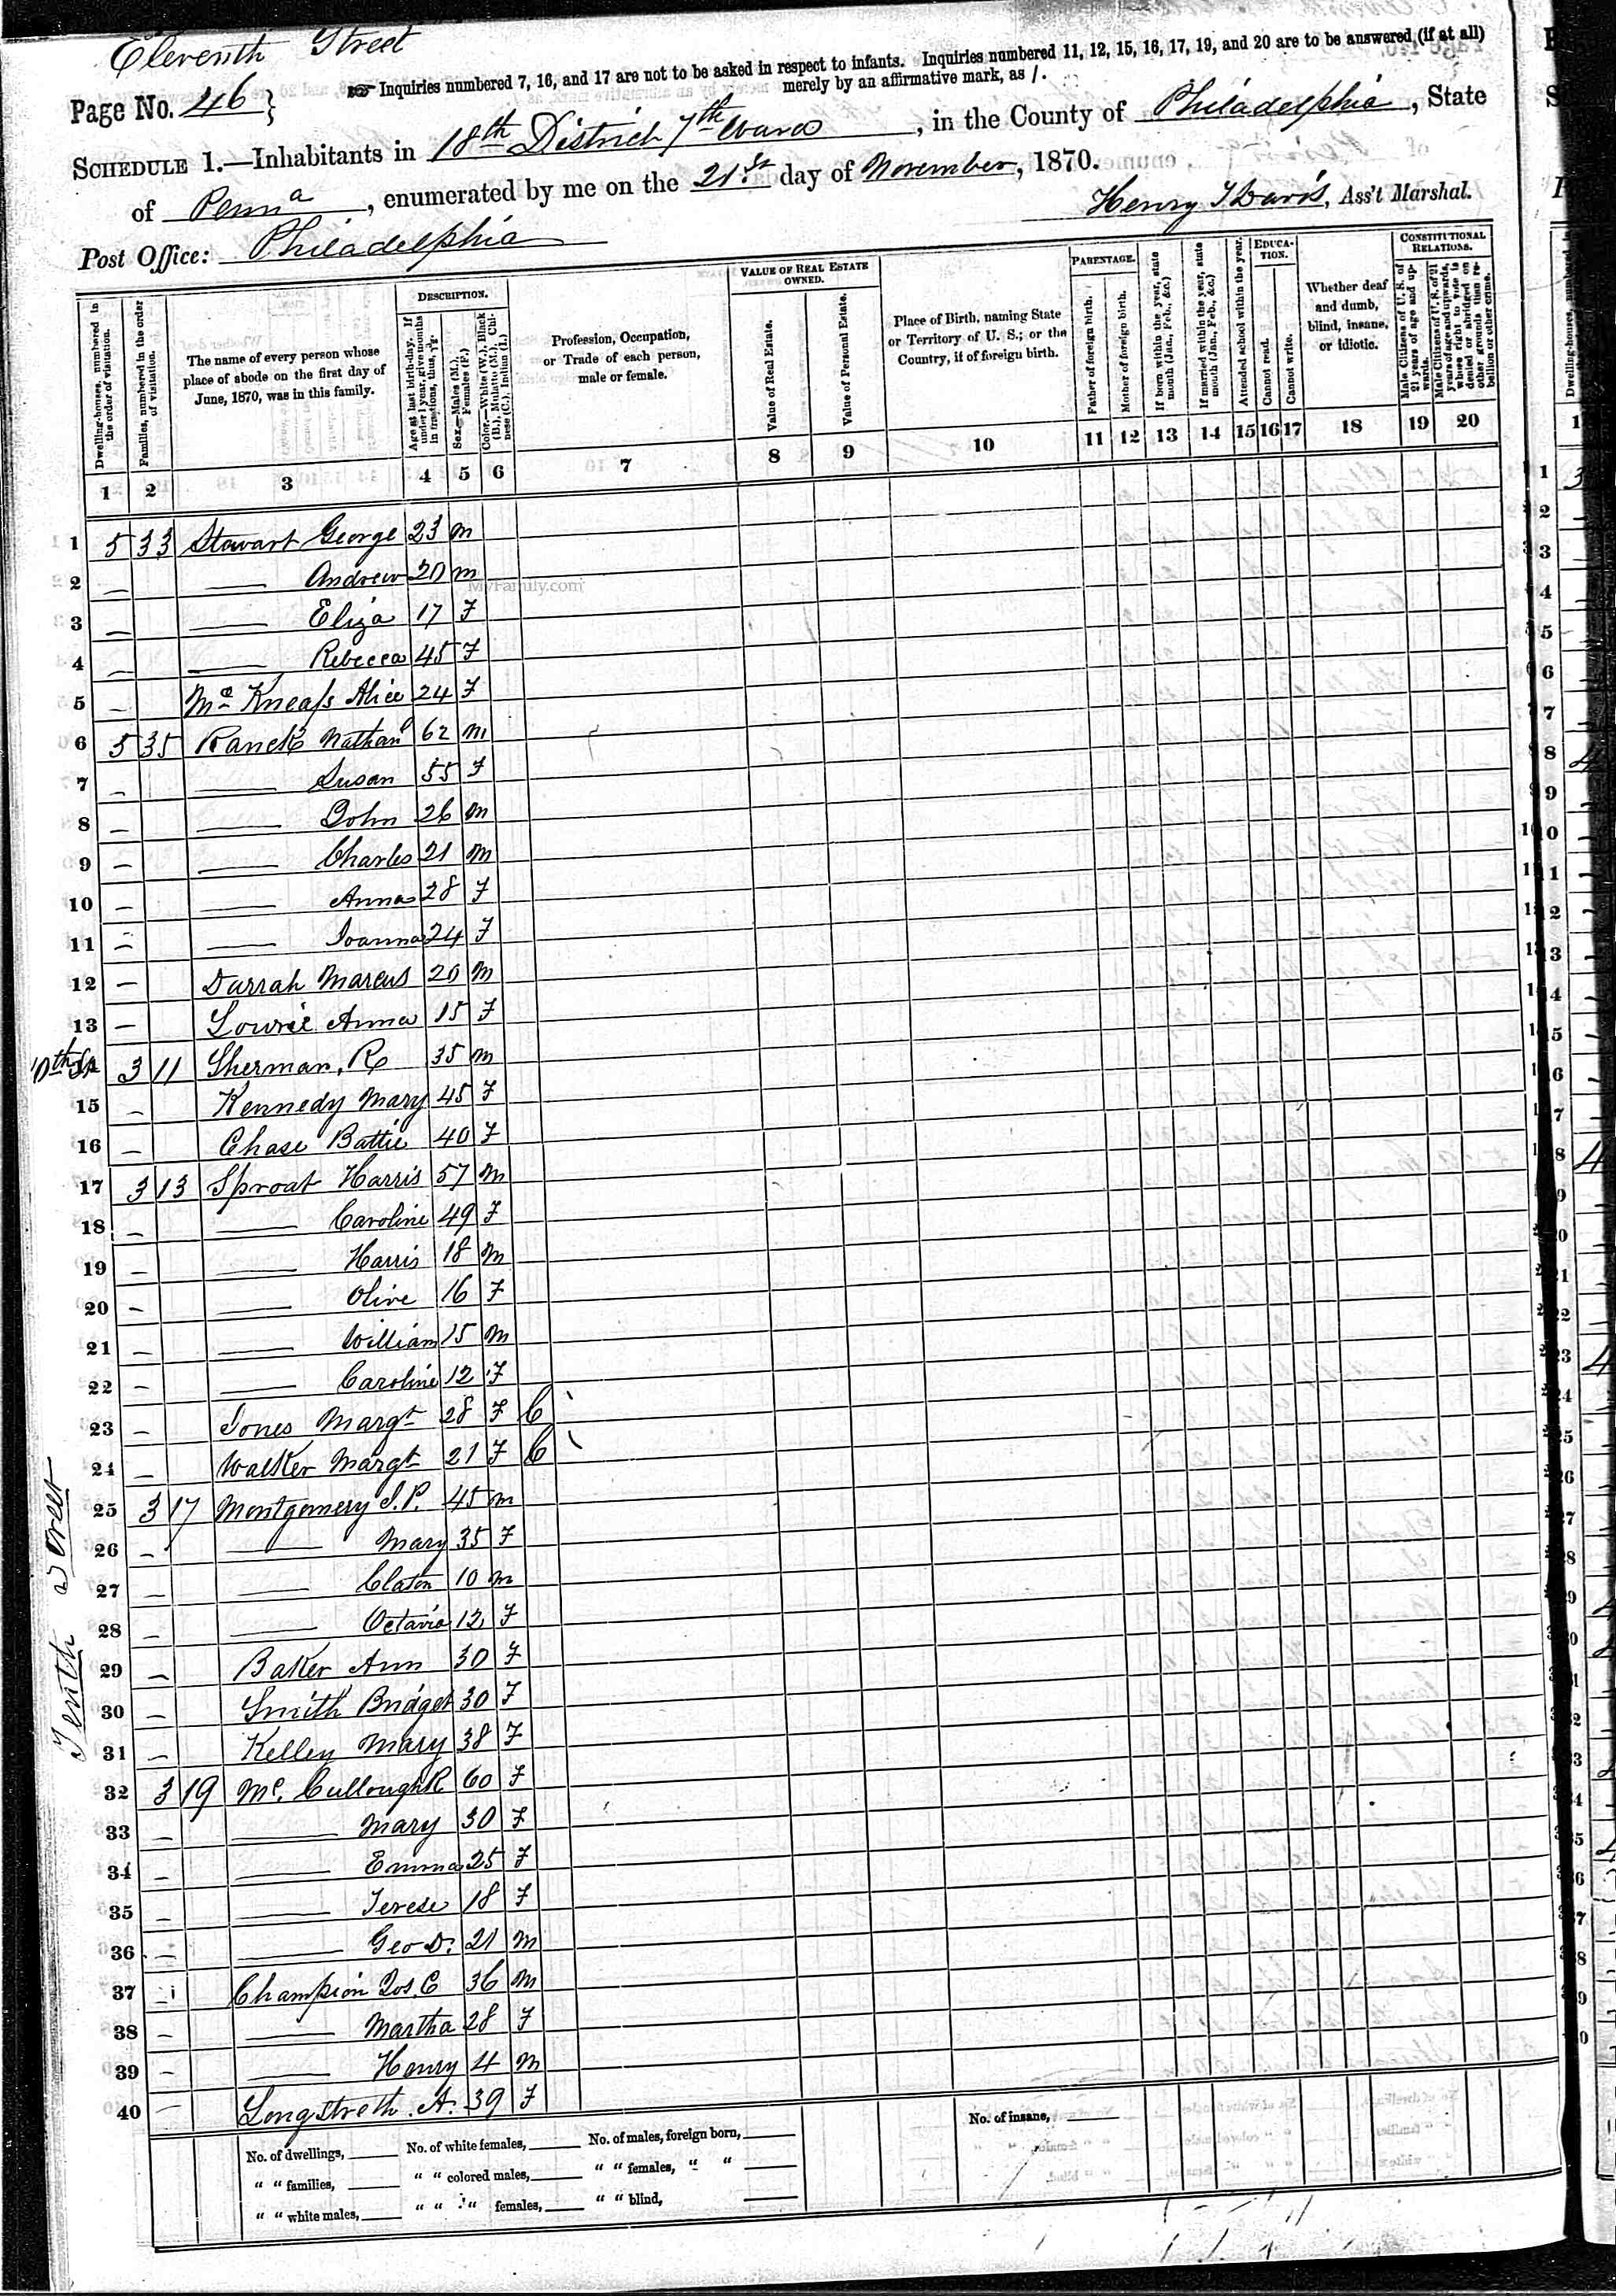 Eleventh Street
Inquiries numbered 7, 16, and 17 are not to be asked in respect to infants. Inquiries numbered 11, 12, 15, 16, 17, 19, and 20 are to be answered (if at all)
merely by an affirmative mark, as /.
Page No. 46
SCHEDULE 1.—Inhabitants in 18th District 7th Ward, in the County of Philadelphia, State
of Penna, enumerated by me on the 21st day of November, 1870.
Post Office: Philadelphia
Henry Davis, Ass't Marshal.
Dwelling-houses, numbered in the order of visitation.
Families, numbered in the order of visitation.
The name of every person whose place of abode on the first day of June, 1870, was in this family.
DESCRIPTION.
Age at last birth-day. If under 1 year, give months in fractions, thus,
Sex.—Males (M.), Females (F.)
Color.—White (W.), Black (B.), Mulatto (M.), Chinese (C.), Indian (I.)
Profession, Occupation, or Trade of each person, male or female.
VALUE OF REAL ESTATE OWNED.
Value of Real Estate.
Value of Personal Estate.
Place of Birth, naming State or Territory of U. S.; or the Country, if of foreign birth.
PARENTAGE.
Father of foreign birth.
Mother of foreign birth.
If born within the year, state month (Jan., Feb., &c.)
If married within the year, state month (Jan., Feb., &c.)
Attended school within the year.
EDUCATION.
Cannot read.
Cannot write.
Whether deaf and dumb, blind, insane, or idiotic.
CONSTITUTIONAL RELATIONS.
Male Citizens of U. S. of 21 years of age and upwards.
Male Citizens of U. S. of 21 years of age and upwards, whose right to vote is denied or abridged on other grounds than rebellion or other crime.
1 2 3 4 5 6 7 8 9 10 11 12 13 14 15 16 17 18 19 20
1 533 Stewart George 23 M
2 — —— Andrew 20 M
MyFamily.com
3 — —— Eliza 17 F
4 — —— Rebecca 45 F
5 — Mc Kneass Alice 24 F
6 535 Ranck Nathan 62 M
7 — —— Susan 55 F
8 — —— John 26 M
9 — —— Charles 21 M
10 — —— Anna 28 F
11 — —— Joanna 24 F
12 — Darrah Marcus 20 M
13 — Lowrie Anna 15 F
10th St 311 Sherman, R 35 M
15 — Kennedy Mary 45 F
16 — Chase Battie 40 F
17 313 Sproat Harris 57 M
18 — —— Caroline 49 F
19 — —— Harris 18 M
20 — —— Olive 16 F
21 — —— William 15 M
22 — —— Caroline 12 F
23 — Jones Margt 28 F C
24 — Walker Margt 21 F C
Tenth Street
25 317 Montgomery J. P. 45 M
26 — —— Mary 35 F
27 — —— Claton 10 M
28 — —— Octavia 12 F
29 — Baker Ann 30 F
30 — Smith Bridget 30 F
31 — Kelley Mary 38 F
32 319 Mc. Cullough R 60 F
33 — —— Mary 30 F
34 — —— Emma 25 F
35 — —— Terese 18 F
36 — —— Geo D. 21 M
37 — Champion Jos. C 36 M
38 — —— Martha 28 F
39 — —— Henry 4 M
40 — Longstreth A. 39 F
No. of dwellings, No. of white females, No. of males, foreign born, No. of insane,
" " families, " " colored males, " " females, " "
" " white males, " " " females, " " blind,